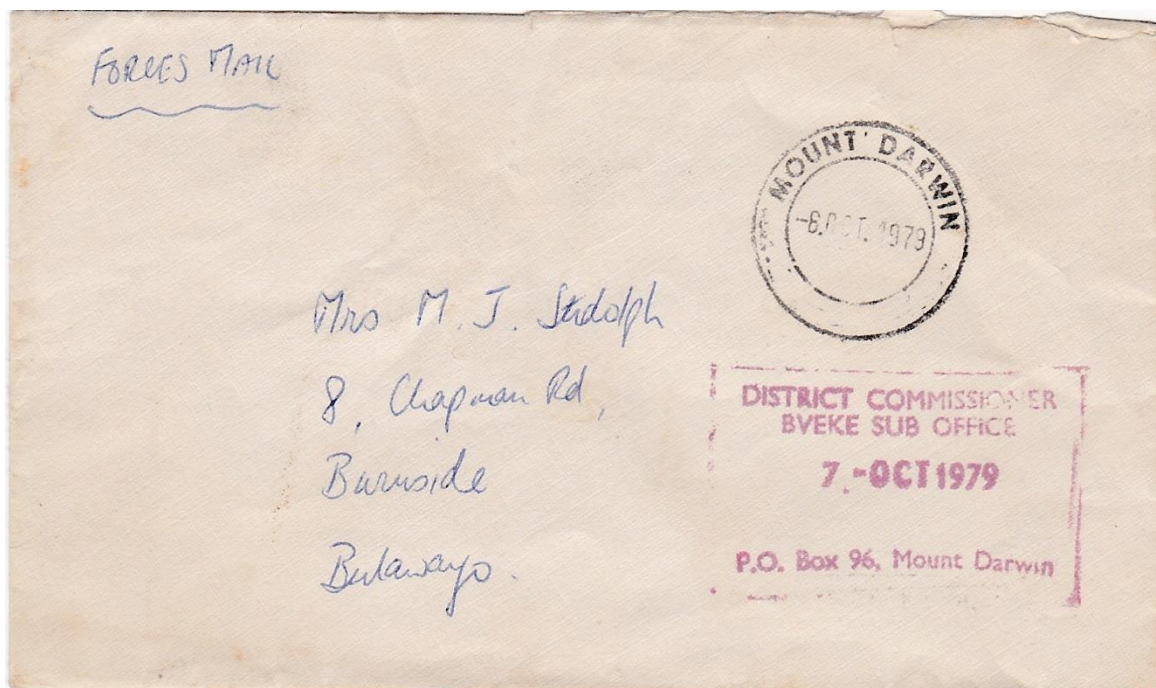 FORCES MAIL
MOUNT DARWIN
-6.OCT.1979
Mrs M. J.
8, Chapman Rd,
Burnside
Bulawayo.
DISTRICT COMMISSIONER
BVEKE SUB OFFICE
7.-OCT 1979
P.O. Box 96, Mount Darwin